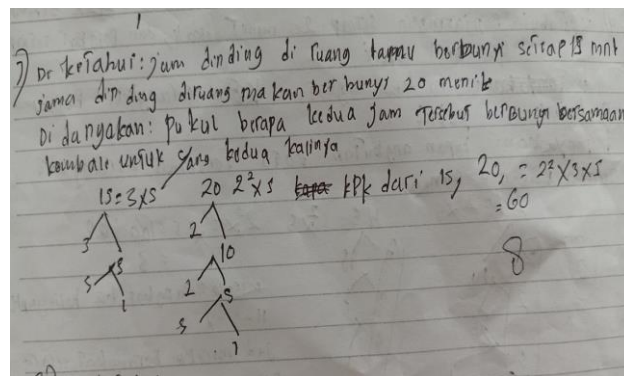 1
7) Di ketahui: jam dinding di ruang tamu berbunyi setiap 15 mnt
jama dinding diruang makan berbunyi 20 menit
Di danyakan: pukul berapa kedua jam tersebut berbunyi bersamaan
kembale untuk yang kedua kalinya
15=3×5 20 2²×5 KPK dari 15, 20, = 2²×3×5
=60
3 5 2 10
5 1 2 5
8
5 1